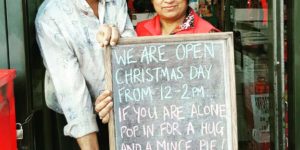 WE ARE OPEN
CHRISTMAS DAY
FROM 12-2PM...
IF YOU ARE ALONE
POP IN FOR A HUG
AND A MINCE PIE!